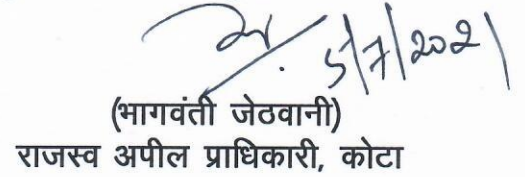 5/7/2021
(भागवंती जेठवानी)
राजस्व अपील प्राधिकारी, कोटा